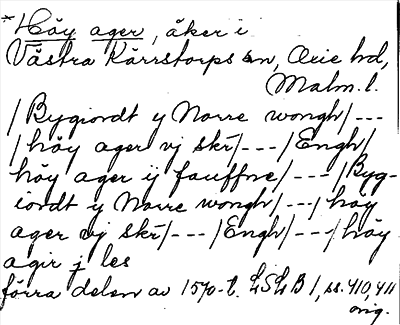 *Höy ager, åker i
Västra Kärrstorps sn, Oxie hd,
Malm. l.
/Bygiordt y Norre wongh/---
/höy ager vj skr/---/Engh/
höy ager ij fauffne/---/Byg-
iordt y Norre wongh/---/hoy
ager vj skr/---/Engh/---/höy
agir j les
förra delen av 1570-t. LSLB 1, ss. 410, 411
orig.